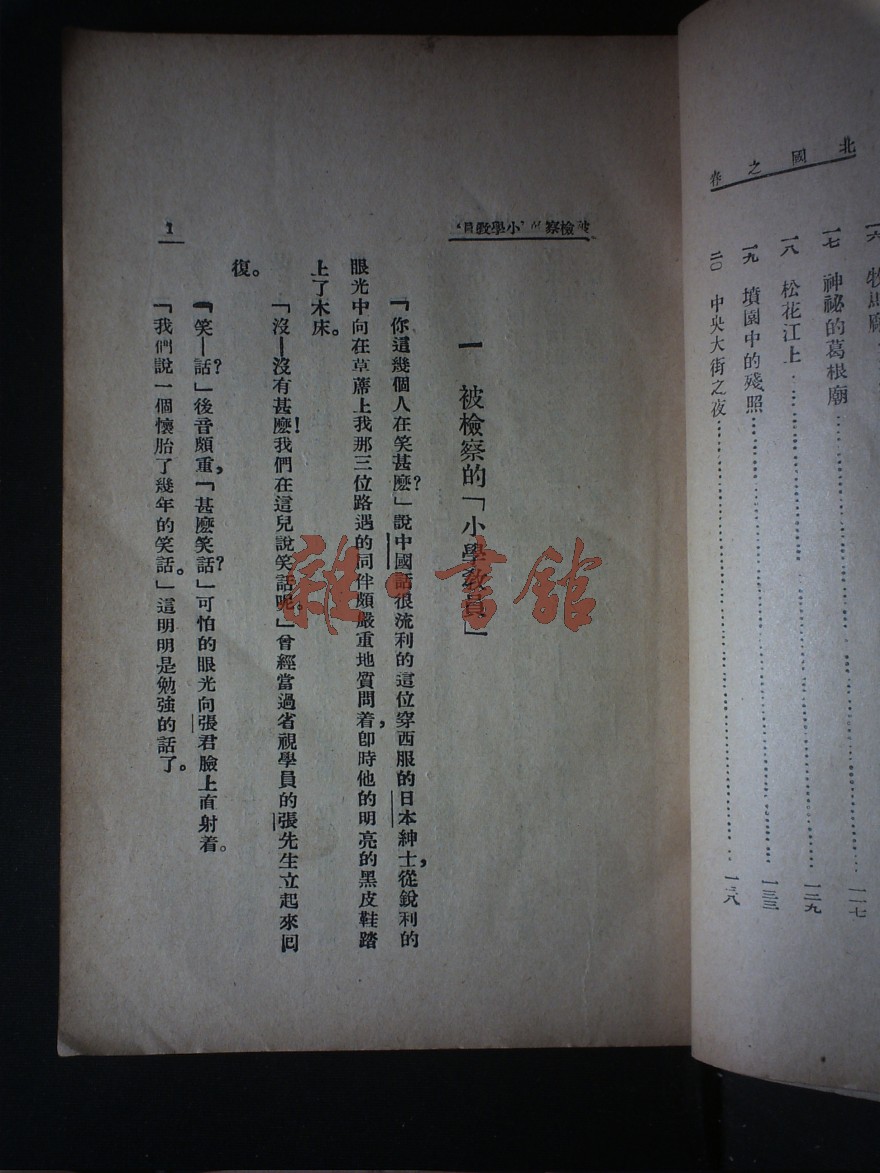 北國之春
一六 牧馬廠
一七 神祕的葛根廟……一一七
一八 松花江上……一二九
一九 墳園中的殘照……一三三
二〇 中央大街之夜……一三八
被檢察的「小學教員」
一 被檢察的「小學教員」
「你這幾個人在笑甚麽?」說中國話很流利的這位穿西服的日本紳士,從銳利的
眼光中向在草蓆上我那三位路遇的同伴頗嚴重地質問着,卽時他的明亮的黑皮鞋踏
上了木床。
「沒—沒有甚麽!我們在這兒說笑話呢。」曾經當過省視學員的張先生立起來回
復。
「笑—話?」後音頗重,「甚麽笑話?」可怕的眼光向張君臉上直射着。
「我們說一個懷胎了幾年的笑話。」這明明是勉強的話了。
1
雜·書館